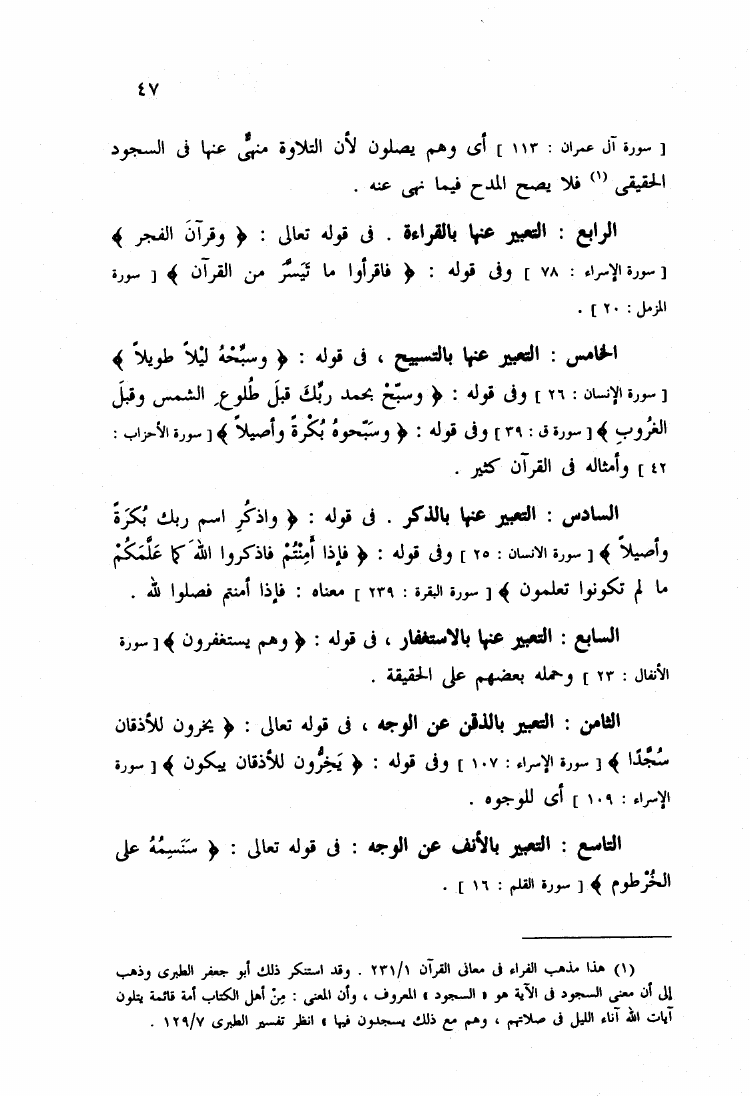 ٤٧
[ سورة آل عمران : ١١٣ ] أى وهم يصلون لأن التلاوة منهىٌّ عنها فى السجود
الحقيقى (١) فلا يصح المدح فيما نهى عنه .
الرابع : التعبير عنها بالقراءة . فى قوله تعالى : ﴿ وقرآنَ الفجر ﴾
[ سورة الإسراء : ٧٨ ] وفى قوله : ﴿ فاقرأوا ما تَيَسَّرَ من القرآن ﴾ [ سورة
المزمل : ٢٠ ] .
الخامس : التعبير عنها بالتسبيح ، فى قوله : ﴿ وسبِّحْهُ ليْلاً طويلاً ﴾
[ سورة الإنسان : ٢٦ ] وفى قوله : ﴿ وسبّحْ بحمد ربِّكَ قبلَ طُلوعِ الشمس وقبلَ
الغرُوبِ ﴾ [ سورة ق : ٣٩ ] وفى قوله : ﴿ وسَبّحوهُ بُكْرةً وأصيلاً ﴾ [ سورة الأحزاب :
٤٢ ] وأمثاله فى القرآن كثير .
السادس : التعبير عنها بالذكر . فى قوله : ﴿ واذكُرِ اسم ربك بُكَرَةً
وأصيلاً ﴾ [ سورة الانسان : ٢٥ ] وفى قوله : ﴿ فإذا أَمِنْتُمْ فاذكروا اللهَ كما عَلَّمَكُمْ
ما لم تكونوا تعلمون ﴾ [ سورة البقرة : ٢٣٩ ] معناه : فإذا أمنتم فصلوا لله .
السابع : التعبير عنها بالاستغفار ، فى قوله : ﴿ وهم يستغفرون ﴾ [ سورة
الأنفال : ٢٣ ] وحمله بعضهم على الحقيقة .
الثامن : التعبير بالذقن عن الوجه ، فى قوله تعالى : ﴿ يخرون للأذقان
سُجَّدًا ﴾ [ سورة الإسراء : ١٠٧ ] وفى قوله : ﴿ يَخِرُّون للأذقان يبكون ﴾ [ سورة
الإسراء : ١٠٩ ] أى للوجوه .
التاسع : التعبير بالأنف عن الوجه : فى قوله تعالى : ﴿ سَنَسِمُهُ على
الخُرْطوم ﴾ [ سورة القلم : ١٦ ] .
(١) هذا مذهب الفراء فى معانى القرآن ٢٣١/١ . وقد استنكر ذلك أبو جعفر الطبرى وذهب
إلى أن معنى السجود فى الآية هو « السجود » المعروف ، وأن المعنى : مِنْ أهل الكتاب أمة قائمة يتلون
آيات الله آناء الليل فى صلاتهم ، وهم مع ذلك يسجدون فيها » انظر تفسير الطبرى ١٢٩/٧ .